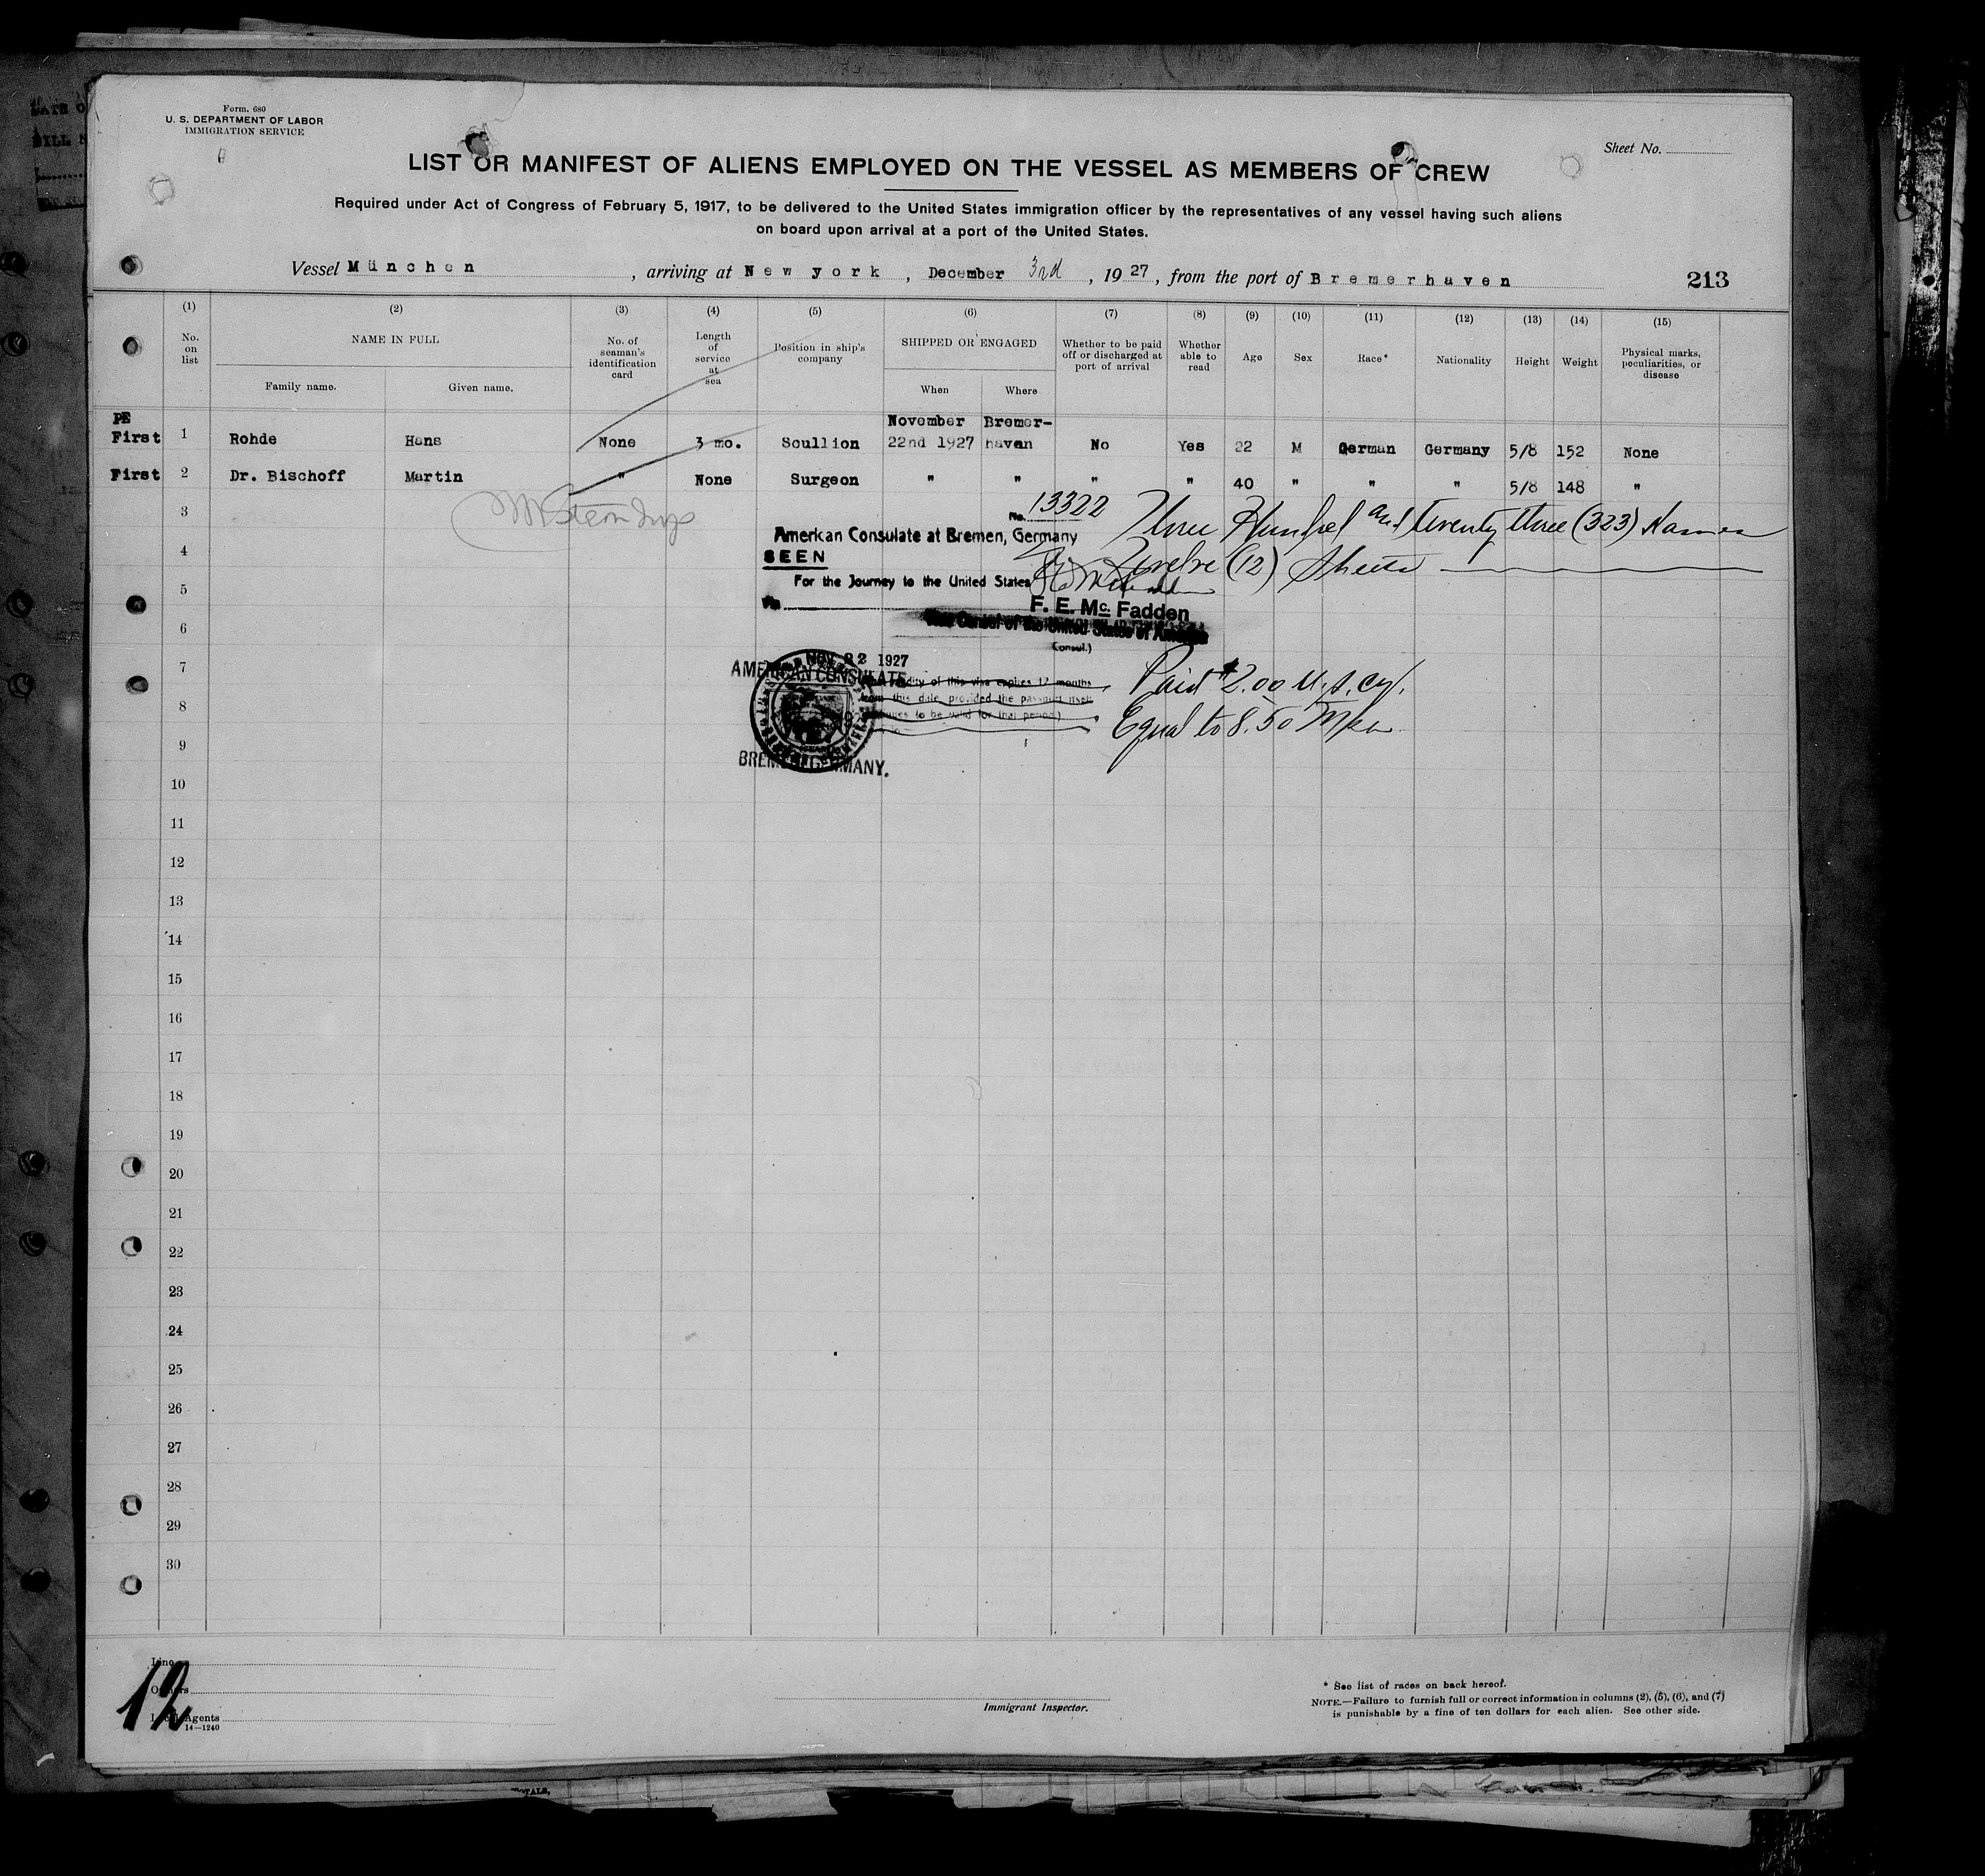 Form. 680
U. S. DEPARTMENT OF LABOR
IMMIGRATION SERVICE
Sheet No.
LIST OR MANIFEST OF ALIENS EMPLOYED ON THE VESSEL AS MEMBERS OF CREW
Required under Act of Congress of February 5, 1917, to be delivered to the United States immigration officer by the representatives of any vessel having such aliens
on board upon arrival at a port of the United States.
Vessel München, arriving at New york, December 3rd, 1927, from the port of Bremerhaven
213
(1) (2) (3) (4) (5) (6) (7) (8) (9) (10) (11) (12) (13) (14) (15)
No. on list
NAME IN FULL
Family name. Given name.
No. of seaman's identification card
Length of service at sea
Position in ship's company
SHIPPED OR ENGAGED
When Where
Whether to be paid off or discharged at port of arrival
Whether able to read
Age
Sex
Race*
Nationality
Height
Weight
Physical marks, peculiarities, or disease
PE
November Bremer-
First 1 Rohde Hans None 3 mo. Scullion 22nd 1927 haven No Yes 22 M German Germany 5/8 152 None
First 2 Dr. Bischoff Martin " None Surgeon " " " " 40 " " " 5/8 148 "
3
No. 13322 Three Hundred and Twenty three (323) Names
American Consulate at Bremen, Germany
4
SEEN
Twelve (12) Sheets
For the Journey to the United States
5
Via
F. E. Mc Fadden
6
Vice Consul of the United States of America
Consul.)
NOV 22 1927
7
AMERICAN CONSULATE
Validity of this visa expires 12 months
from this date, provided the passport itself
continues to be valid for that period.)
Paid $2.00 U.S. Cy.
8
Equal to 8.50 Mks
9
BREMEN, GERMANY.
10
11
12
13
14
15
16
17
18
19
20
21
22
23
24
25
26
27
28
29
30
Line
Owners
Local Agents
14—1240
12
Immigrant Inspector.
* See list of races on back hereof.
NOTE.—Failure to furnish full or correct information in columns (2), (5), (6), and (7)
is punishable by a fine of ten dollars for each alien. See other side.